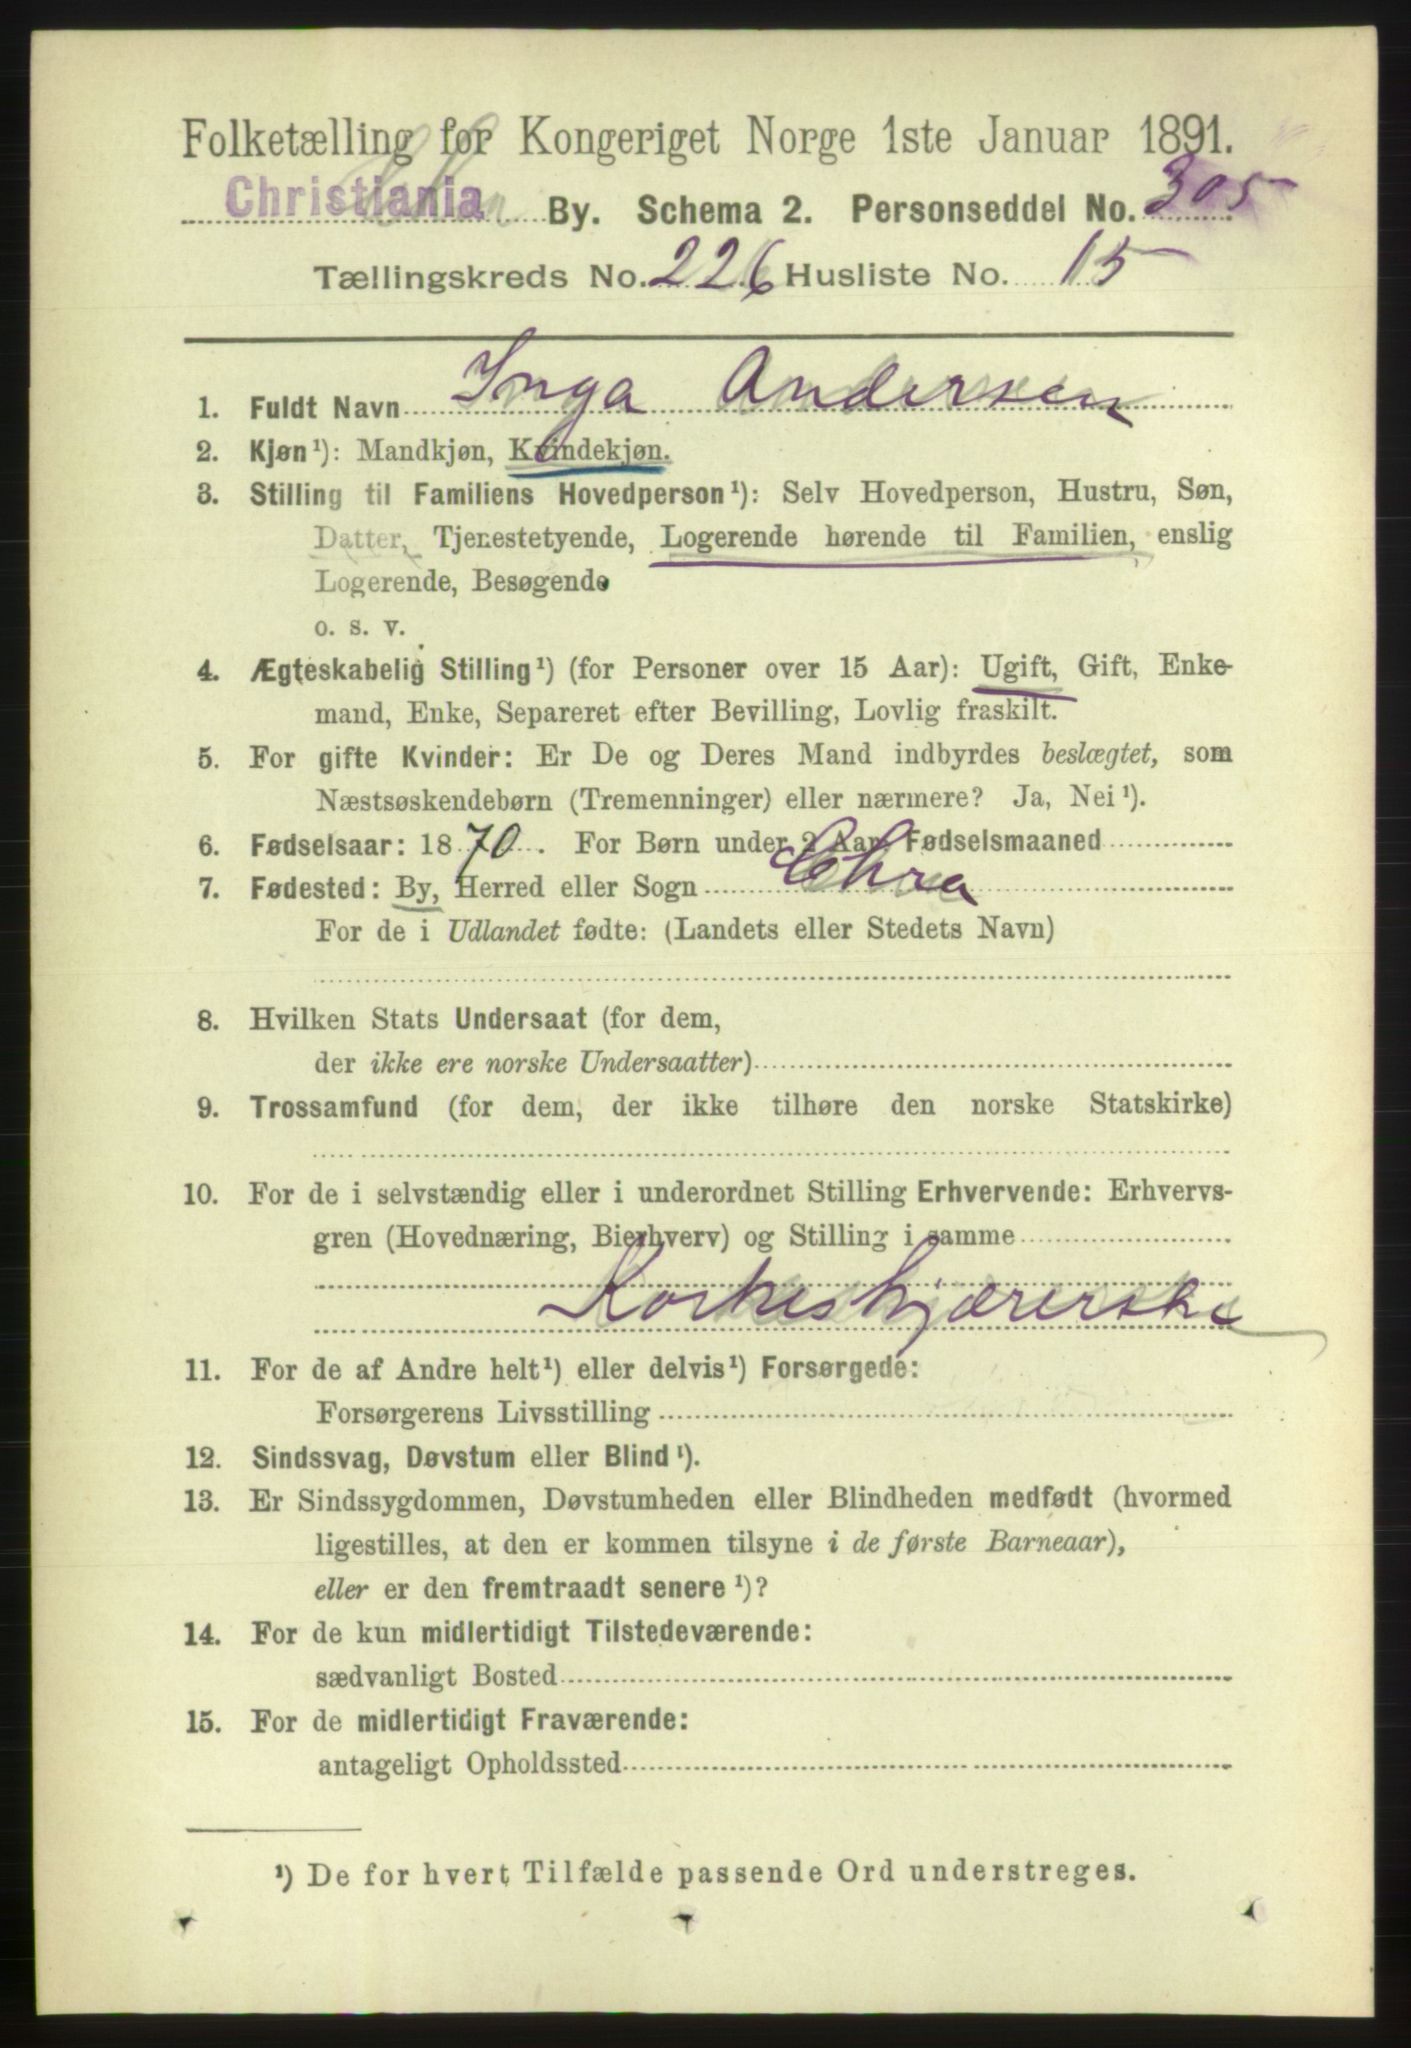 Folketælling for Kongeriget Norge 1ste Januar 1891.
Christiania By. Schema 2. Personseddel No. 305
Tællingskreds No. 226 Husliste No. 15
1. Fuldt Navn Inga Andersen
2. Kjøn¹): Mandkjøn, Kvindekjøn.
3. Stilling til Familiens Hovedperson¹): Selv Hovedperson, Hustru, Søn,
Datter, Tjenestetyende, Logerende hørende til Familien, enslig
Logerende, Besøgende
o. s. v.
4. Ægteskabelig Stilling¹) (for Personer over 15 Aar): Ugift, Gift, Enke-
mand, Enke, Separeret efter Bevilling, Lovlig fraskilt.
5. For gifte Kvinder: Er De og Deres Mand indbyrdes beslægtet, som
Næstsøskendebørn (Tremenninger) eller nærmere? Ja, Nei¹).
6. Fødselsaar: 1870. For Børn under 2 Aar, Fødselsmaaned
7. Fødested: By, Herred eller Sogn Chra
For de i Udlandet fødte: (Landets eller Stedets Navn)
8. Hvilken Stats Undersaat (for dem,
der ikke ere norske Undersaatter)
9. Trossamfund (for dem, der ikke tilhøre den norske Statskirke)
10. For de i selvstændig eller i underordnet Stilling Erhvervende: Erhvervs-
gren (Hovednæring, Bierhverv) og Stilling i samme
Korkeskjærerske
11. For de af Andre helt¹) eller delvis¹) Forsørgede:
Forsørgerens Livsstilling
12. Sindssvag, Døvstum eller Blind¹).
13. Er Sindssygdommen, Døvstumheden eller Blindheden medfødt (hvormed
ligestilles, at den er kommen tilsyne i de første Barneaar),
eller er den fremtraadt senere¹)?
14. For de kun midlertidigt Tilstedeværende:
sædvanligt Bosted
15. For de midlertidigt Fraværende:
antageligt Opholdssted
¹) De for hvert Tilfælde passende Ord understreges.